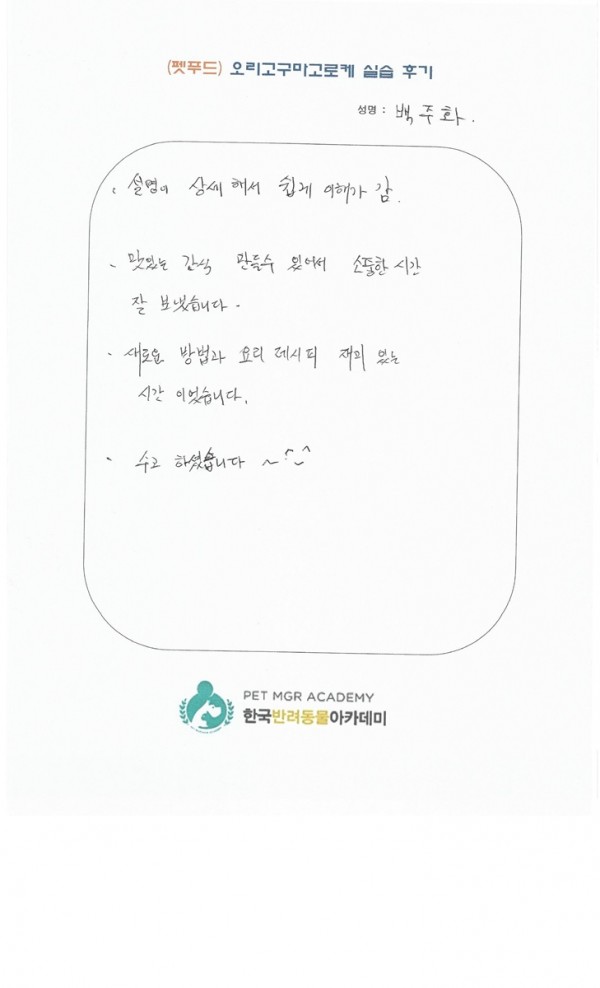 (펫푸드) 오리고구마고로케 실습 후기
성명 : 백주화.
· 설명이 상세해서 쉽게 이해가 감.
· 맛있는 간식 만들수 있어서 소풍한 시간
잘 보냈습니다.
· 새로운 방법과 요리 레시피 재미 있는
시간 이었습니다.
· 수고 하셨습니다 ~^^
PET MGR ACADEMY
한국반려동물아카데미